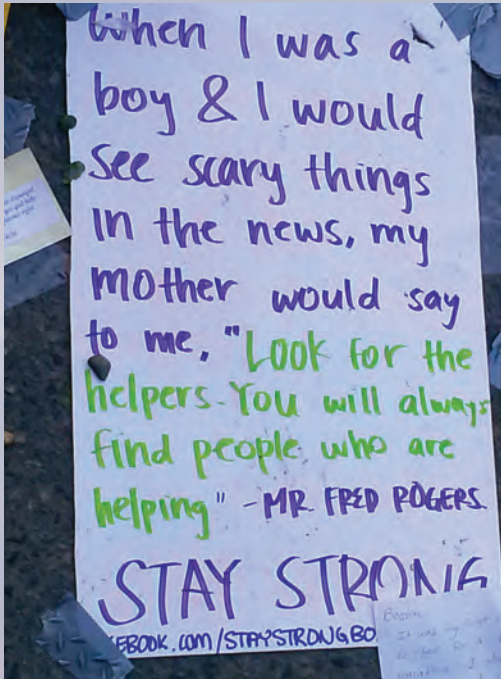 When I was a
boy & I would
see scary things
in the news, my
mother would say
to me, "Look for the
helpers. You will always
find people who are
helping" -MR. FRED ROGERS.
STAY STRONG
EBOOK.COM/STAYSTRONGBO
Boston,
It was my